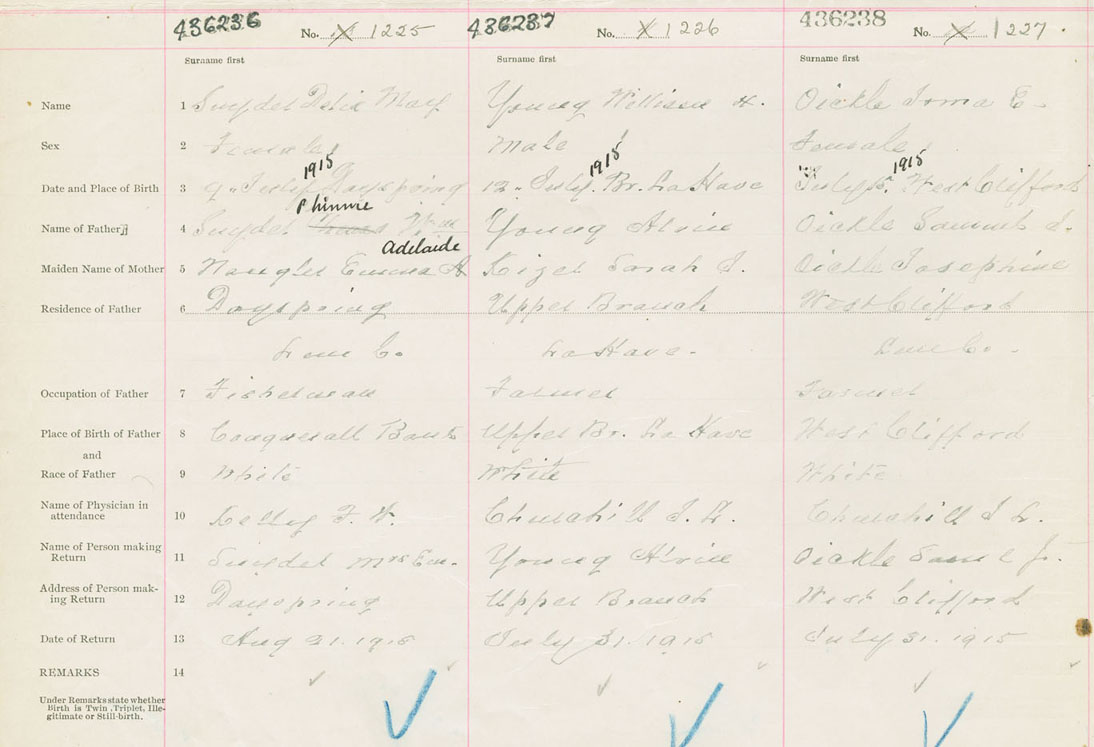 436236 No. 1225 436237 No. 1226 436238 No. 1227
Surname first Surname first Surname first
Name 1 Snyder Delia May Young William H. Oickle Irma E.
Sex 2 Female Male Female
1915 1915 1915
Date and Place of Birth 3 9" July Dayspring 12" July. Br. La Have July West Clifford
Phinnie
Name of Father 4 Snyder Young Alvin Oickle Samuel
Adelaide
Maiden Name of Mother 5 Naugler Emma A Keizer Sarah J. Oickle Josephine
Residence of Father 6 Dayspring Upper Branch West Clifford
Lun Co. La Have. Lun Co.
Occupation of Father 7 Fisherman Farmer Farmer
Place of Birth of Father 8 Conquerall Bank Upper Br. La Have West Clifford
and
Race of Father 9 White White White
Name of Physician in
attendance 10 Kelley F. W. Churchill J. L. Churchill J L.
Name of Person making
Return 11 Snyder Mrs Em. Young Alvin Oickle Saml Jr.
Address of Person mak-
ing Return 12 Dayspring Upper Branch West Clifford
Date of Return 13 Aug 21. 1915 July 31. 1915 July 31. 1915
REMARKS 14
Under Remarks state whether
Birth is Twin, Triplet, Ille-
gitimate or Still-birth.